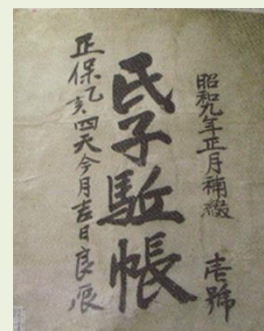 昭和九年正月補綴 壱號
氏子駈帳
正保乙亥四天今月吉日良辰